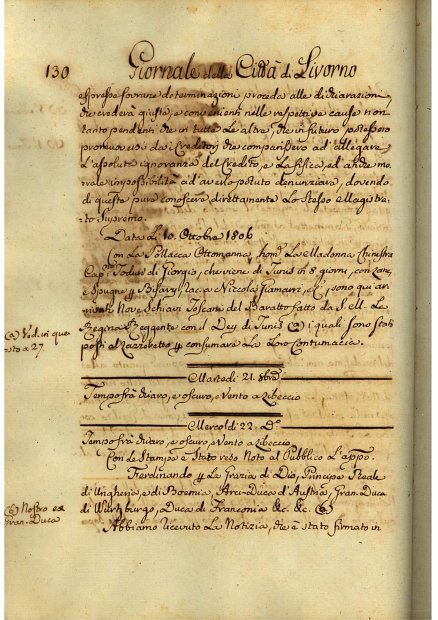 130 Giornale della Città di Livorno
espresse sovrane determinazioni proceda alle dichiarazioni,
che crederà giuste, e convenienti nelle respettive cause non
tanto pendenti che in tutte le altre, che in futuro potessero
promuoversi dai Creditori che comparissero ad allegare
l'assoluta ignoranza del Credito, e la fisica, ed anche mo-
rale impossibilità ad averlo potuto denunziare, dovendo
di queste pure conoscere direttamente lo stesso Magistra-
to Supremo.
Data li 10. Ottobre 1806
Con la Pollacca Ottomanna, nom.
Cap.no di Giorgio, che viene di Tunis in 8 giorni, con
e Spugne p Niccola sono qui ar-
rivati Nove Schiavi Toscani del Baratto fatto da S. M. La
Regina Reggente con il Dey di Tunis (a) i quali sono stati
posti al Lazzeretto p consumare la loro Contumacia.
(a) Ved. in que
sto a 27
Martedì 21. 8bre
Tempo frà chiaro, e oscuro, e Vento a Libeccio
Mercoldì 22. D.o
Tempo frà chiaro, e oscuro, e Vento a Libeccio
Con le Stampe è Stato reso Noto al Pubblico L'appo.
Ferdinando p La Grazia di Dio, Principe Reale
di Ungheria, e di Boemia, Arci-Duca d'Austria, Gran-Duca
di Würtzburgo, Duca di Franconia &c. &c. (b)
(b) Nostro ex
Gran-Duca
Abbiamo ricevuto La Notizia, che è stato firmato in